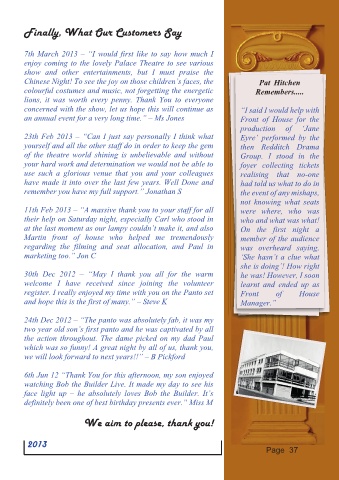 Finally, What Our Customers Say
7th March 2013 – “I would first like to say how much I
enjoy coming to the lovely Palace Theatre to see various
show and other entertainments, but I must praise the
Chinese Night! To see the joy on those children’s faces, the
colourful costumes and music, not forgetting the energetic
lions, it was worth every penny. Thank You to everyone
concerned with the show, let us hope this will continue as
an annual event for a very long time.” – Ms Jones
23th Feb 2013 – “Can I just say personally I think what
yourself and all the other staff do in order to keep the gem
of the theatre world shining is unbelievable and without
your hard work and determination we would not be able to
use such a glorious venue that you and your colleagues
have made it into over the last few years. Well Done and
remember you have my full support.” Jonathan S
11th Feb 2013 – “A massive thank you to your staff for all
their help on Saturday night, especially Carl who stood in
at the last moment as our lampy couldn’t make it, and also
Martin front of house who helped me tremendously
regarding the filming and seat allocation, and Paul in
marketing too.” Jon C
30th Dec 2012 – “May I thank you all for the warm
welcome I have received since joining the volunteer
register. I really enjoyed my time with you on the Panto set
and hope this is the first of many.” – Steve K
24th Dec 2012 – “The panto was absolutely fab, it was my
two year old son’s first panto and he was captivated by all
the action throughout. The dame picked on my dad Paul
which was so funny! A great night by all of us, thank you,
we will look forward to next years!!” – B Pickford
6th Jun 12 “Thank You for this afternoon, my son enjoyed
watching Bob the Builder Live. It made my day to see his
face light up – he absolutely loves Bob the Builder. It’s
definitely been one of best birthday presents ever.” Miss M
We aim to please, thank you!
2013
Pat Hitchen
Remembers.....
“I said I would help with
Front of House for the
production of ‘Jane
Eyre’ performed by the
then Redditch Drama
Group. I stood in the
foyer collecting tickets
realising that no-one
had told us what to do in
the event of any mishaps,
not knowing what seats
were where, who was
who and what was what!
On the first night a
member of the audience
was overheard saying,
‘She hasn’t a clue what
she is doing’! How right
he was! However, I soon
learnt and ended up as
Front of House
Manager.”
Page 37